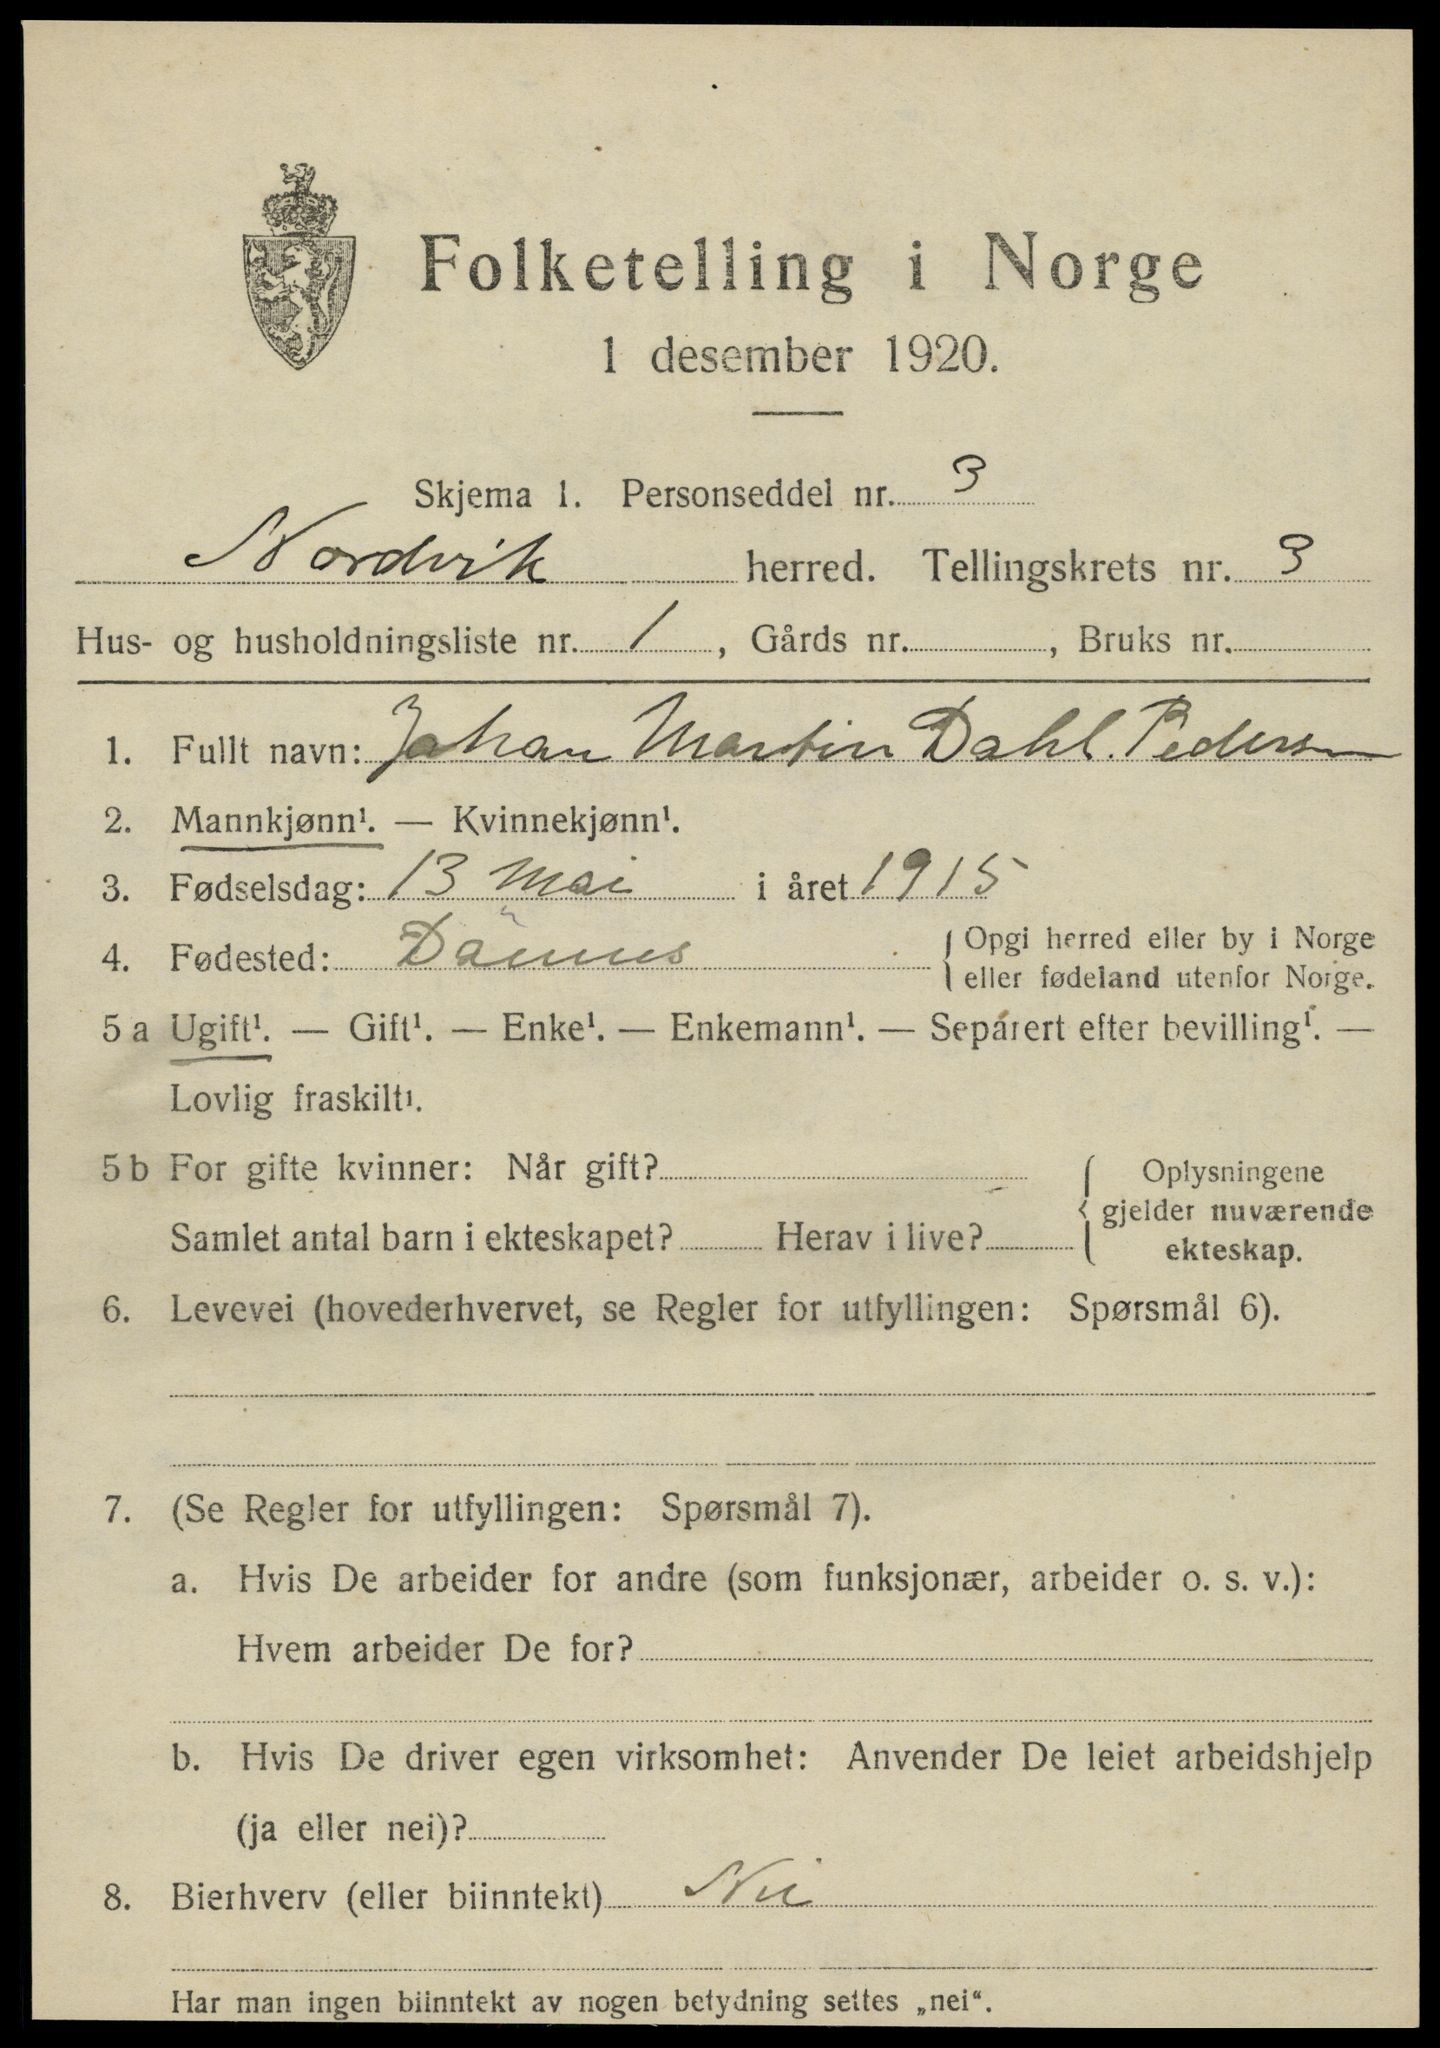 Folketelling i Norge
1 desember 1920.
Skjema 1. Personseddel nr. 3
Nordvik herred. Tellingskrets nr. 3
Hus- og husholdningsliste nr. 1, Gårds nr. , Bruks nr.
1. Fullt navn: Johan Martin Dahl. Pedersen
2. Mannkjønn¹. — Kvinnekjønn¹.
3. Fødselsdag: 13 Mai i året 1915
4. Fødested: Dønnes { Opgi herred eller by i Norge
eller fødeland utenfor Norge.
5 a Ugift¹. — Gift¹. — Enke¹. — Enkemann¹. — Separert efter bevilling¹. —
Lovlig fraskilt¹.
5 b For gifte kvinner: Når gift? { Oplysningene
gjelder nuværende
ekteskap.
Samlet antal barn i ekteskapet? Herav i live?
6. Levevei (hovederhvervet, se Regler for utfyllingen: Spørsmål 6).
7. (Se Regler for utfyllingen: Spørsmål 7).
a. Hvis De arbeider for andre (som funksjonær, arbeider o. s. v.):
Hvem arbeider De for?
b. Hvis De driver egen virksomhet: Anvender De leiet arbeidshjelp
(ja eller nei)?
8. Bierhverv (eller biinntekt) Nei
Har man ingen biinntekt av nogen betydning settes „nei“.